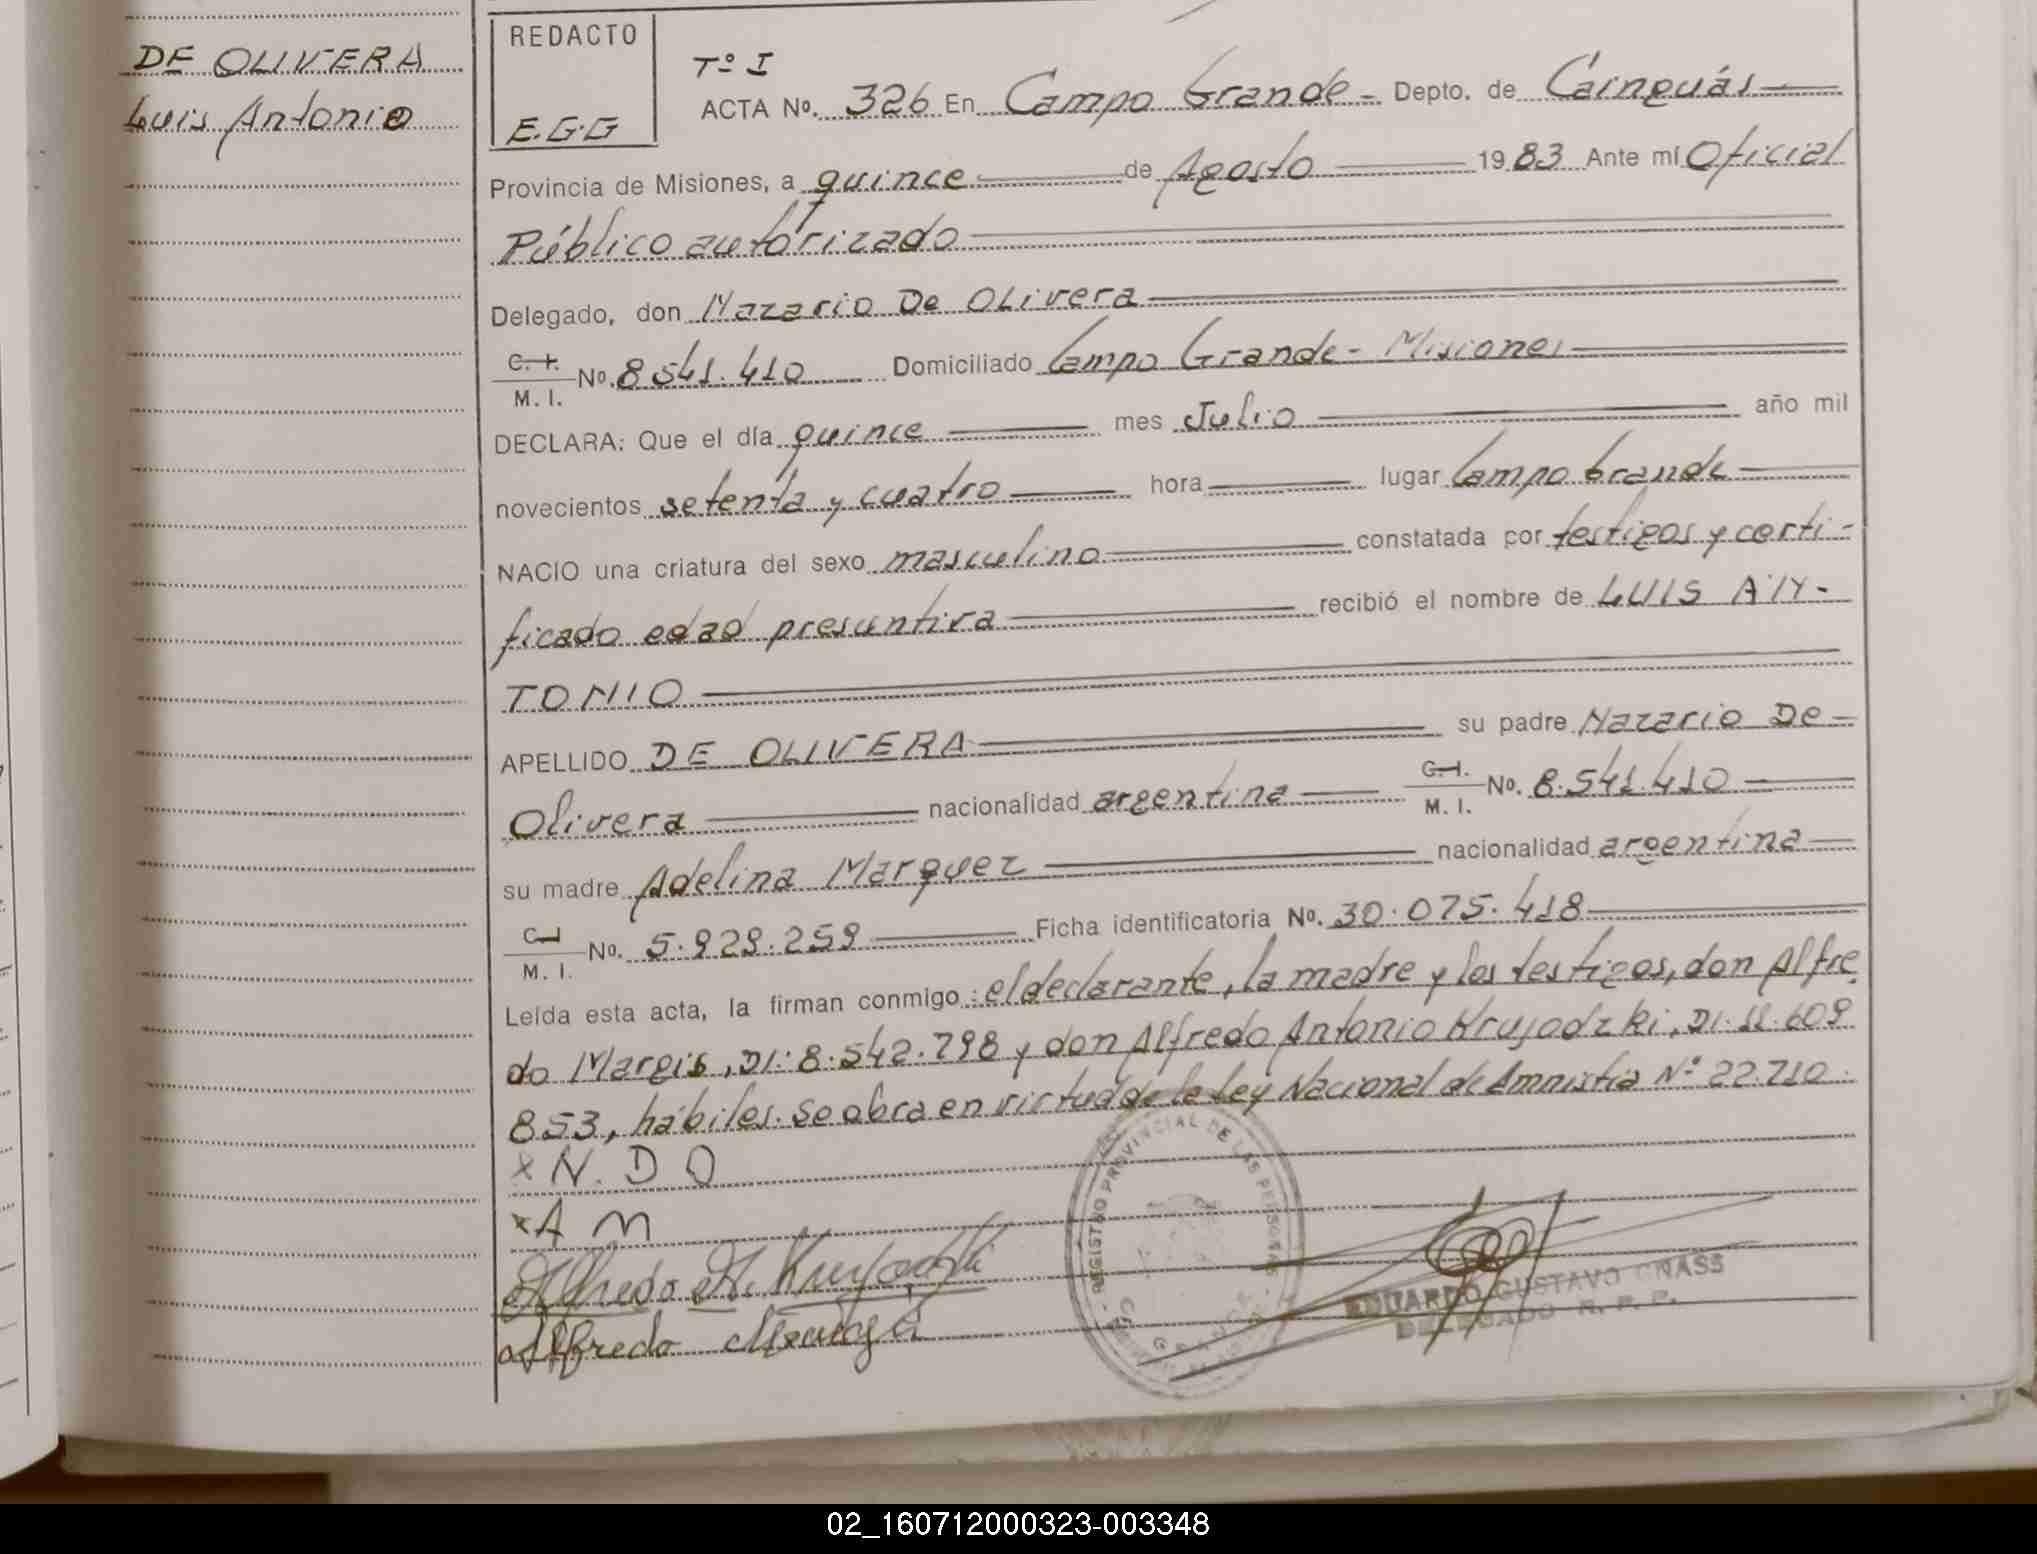 DE OLIVERA
Luis Antonio
REDACTO
E.G.G
Tº I
ACTA Nº. 326 En Campo Grande - Depto. de Cainguás
Provincia de Misiones, a quince de Agosto 1983 Ante mí Oficial
Público autorizado
Delegado, don Nazario De Olivera
C. I. M. I. No. 8.541.410 Domiciliado Campo Grande - Misiones
DECLARA: Que el día quince mes Julio año mil
novecientos setenta y cuatro hora lugar Campo Grande
NACIO una criatura del sexo masculino constatada por testigos y certi-
ficado edad presuntiva recibió el nombre de LUIS AN-
TONIO
APELLIDO DE OLIVERA su padre Nazario De
Olivera nacionalidad argentina C. I. M. I. No. 8.541.410
su madre Adelina Marquez nacionalidad argentina
C. I. M. I. No. 5.929.259 Ficha identificatoria No. 30.075.418
Leída esta acta, la firman conmigo: el declarante, la madre y los testigos, don Alfre
do Margis, DI: 8.542.798 y don Alfredo Antonio Krujodzki, DI. 11.609
853, hábiles. Se obra en virtud de la Ley Nacional de Amnistía Nº 22.710.
x N. D O
x A M
Alfredo A.
Alfredo
REGISTRO PROVINCIAL DE LAS PERSONAS
EDUARDO GUSTAVO GNASS
DELEGADO R. P. P.
02_160712000323-003348